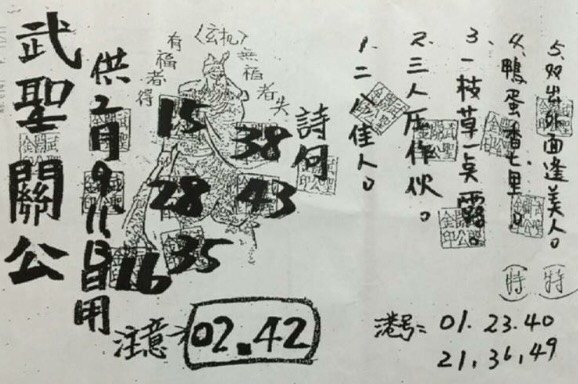 武聖關公
供2月9.11.13日用
〈玄机〉
有福者得
無福者失
15
38
28
43
35
16
詩句
1、二八佳人。
2、三人压作伙。
3、一枝草一点露。
4、鴨蛋香七里。
5、双出外面逢美人。
(特)
(特)
注意 02.42
港号= 01.23.40
21.31.49